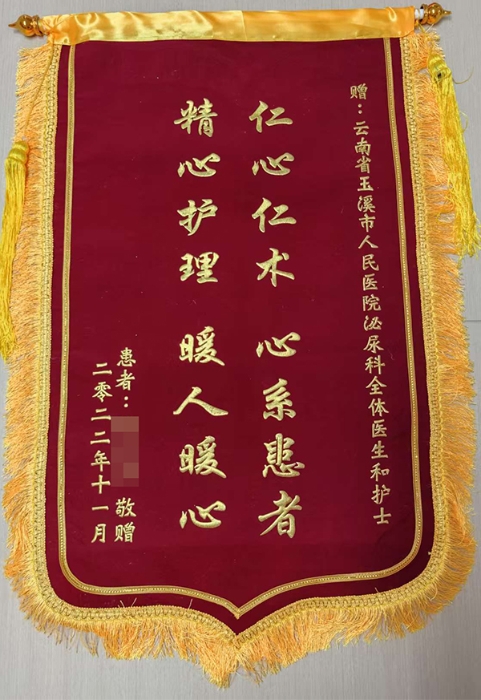 赠：云南省玉溪市人民医院泌尿科全体医生和护士
仁心仁术 心系患者
精心护理 暖人暖心
患者： 敬赠
二零二二年十一月